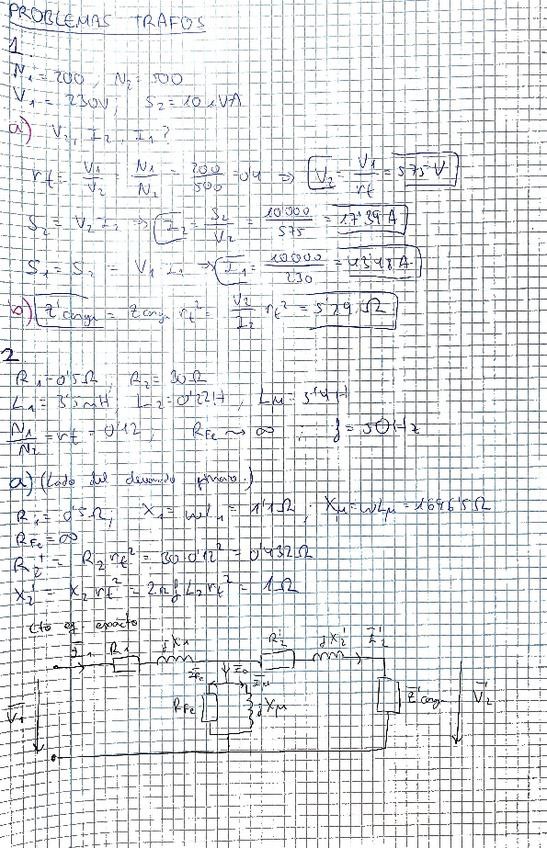 PROBLEMAS TRAFOS
1.
N₁ = 200, N₂ = 500
V₁ = 230V; S₂ = 10 kVA
a) V₂, I₂, I₁?
rt = V₁/V₂ = N₁/N₂ = 200/500 = 0'4 ⇒ V₂ = V₁/rt = 575 V
S₂ = V₂ I₂ ⇒ I₂ = S₂/V₂ = 10'000/575 = 17'39 A
S₁ = S₂ = V₁ I₁ ⇒ I₁ = 10'000/230 = 43'48 A
b) Z'carga = Zcarga rt² = V₂/I₂ rt² = 5'29 Ω
2.
R₁ = 0'5Ω, R₂ = 30Ω
L₁ = 3'5mH, L₂ = 0'22H, Lμ = 5'4H
N₁/N₂ = rt = 0'12, RFe → ∞; f = 50Hz
a) (Lado del devanado primario.)
R₁ = 0'5Ω, X₁ = ωL₁ = 1'1Ω; Xμ = ωLμ = 1696'5Ω
RFe = ∞
R₂' = R₂ rt² = 30·0'12² = 0'432Ω
X₂' = X₂ rt² = 2πf L₂ rt² = 1Ω
Cto eq. exacto
I₁ R₁ jX₁ R₂' jX₂' I₂'
IFe I₀ Iμ
V₁ RFe jXμ Z'carga V₂'